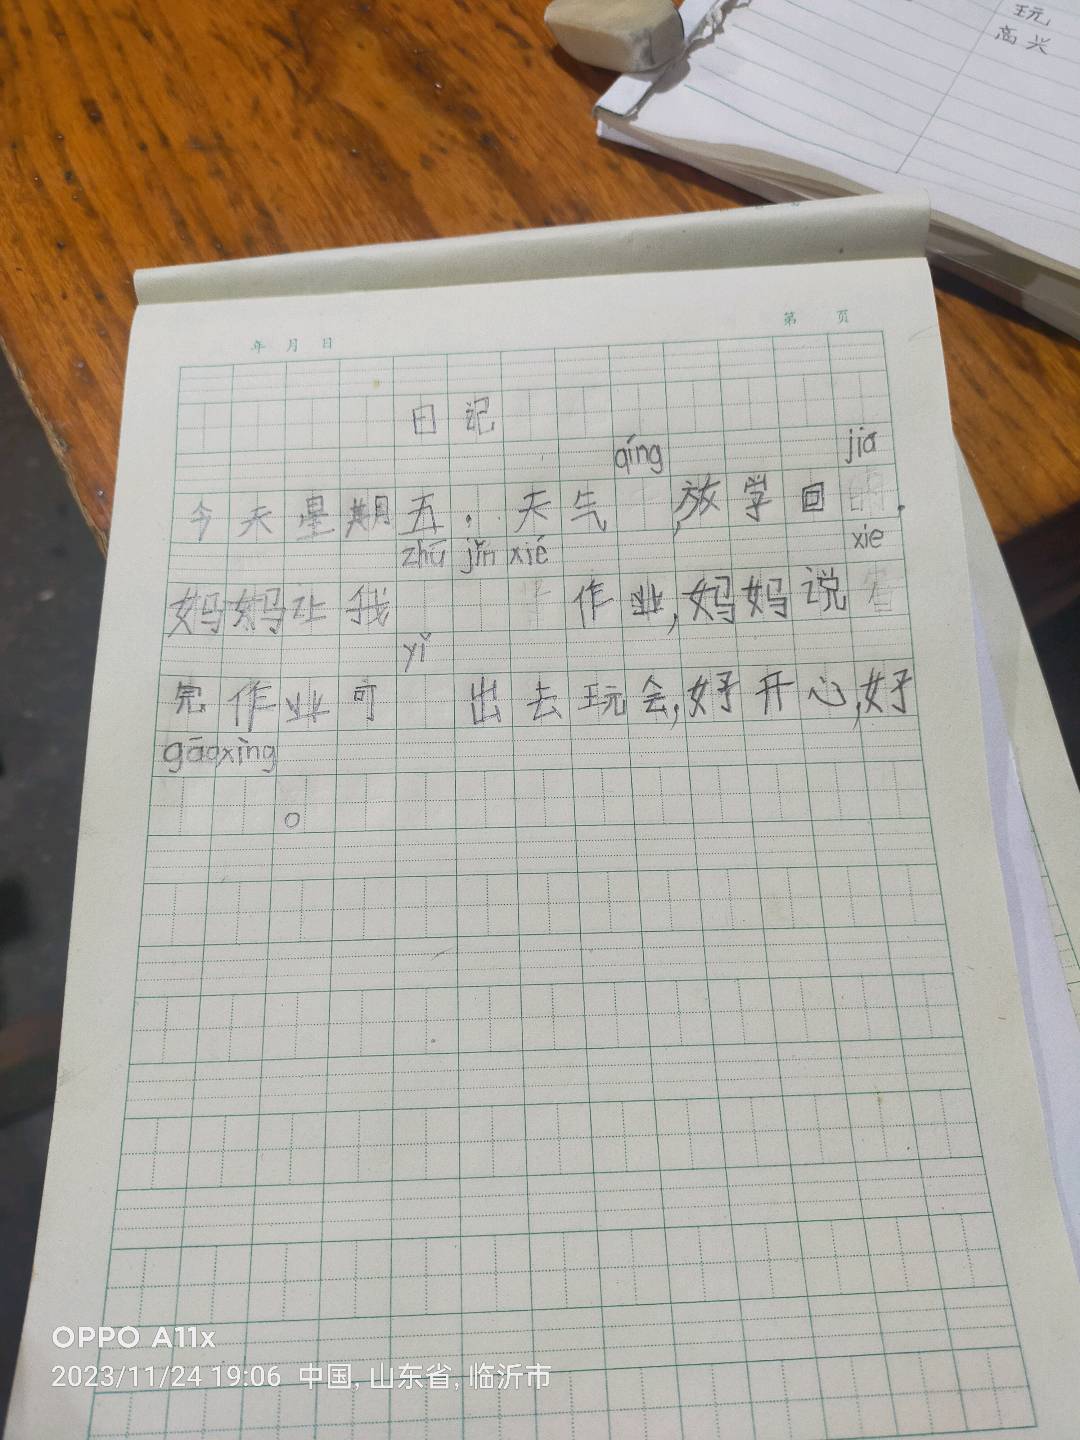 玩
高兴
第 页
年 月 日
日记
qíng jiā
今天星期五.天气 ,放学回 ,
zhū jǐn xié xie
妈妈让我 作业,妈妈说
yǐ
完作业可 出去玩会,好开心,好
gāoxìng
。
OPPO A11x
2023/11/24 19:06 中国, 山东省, 临沂市